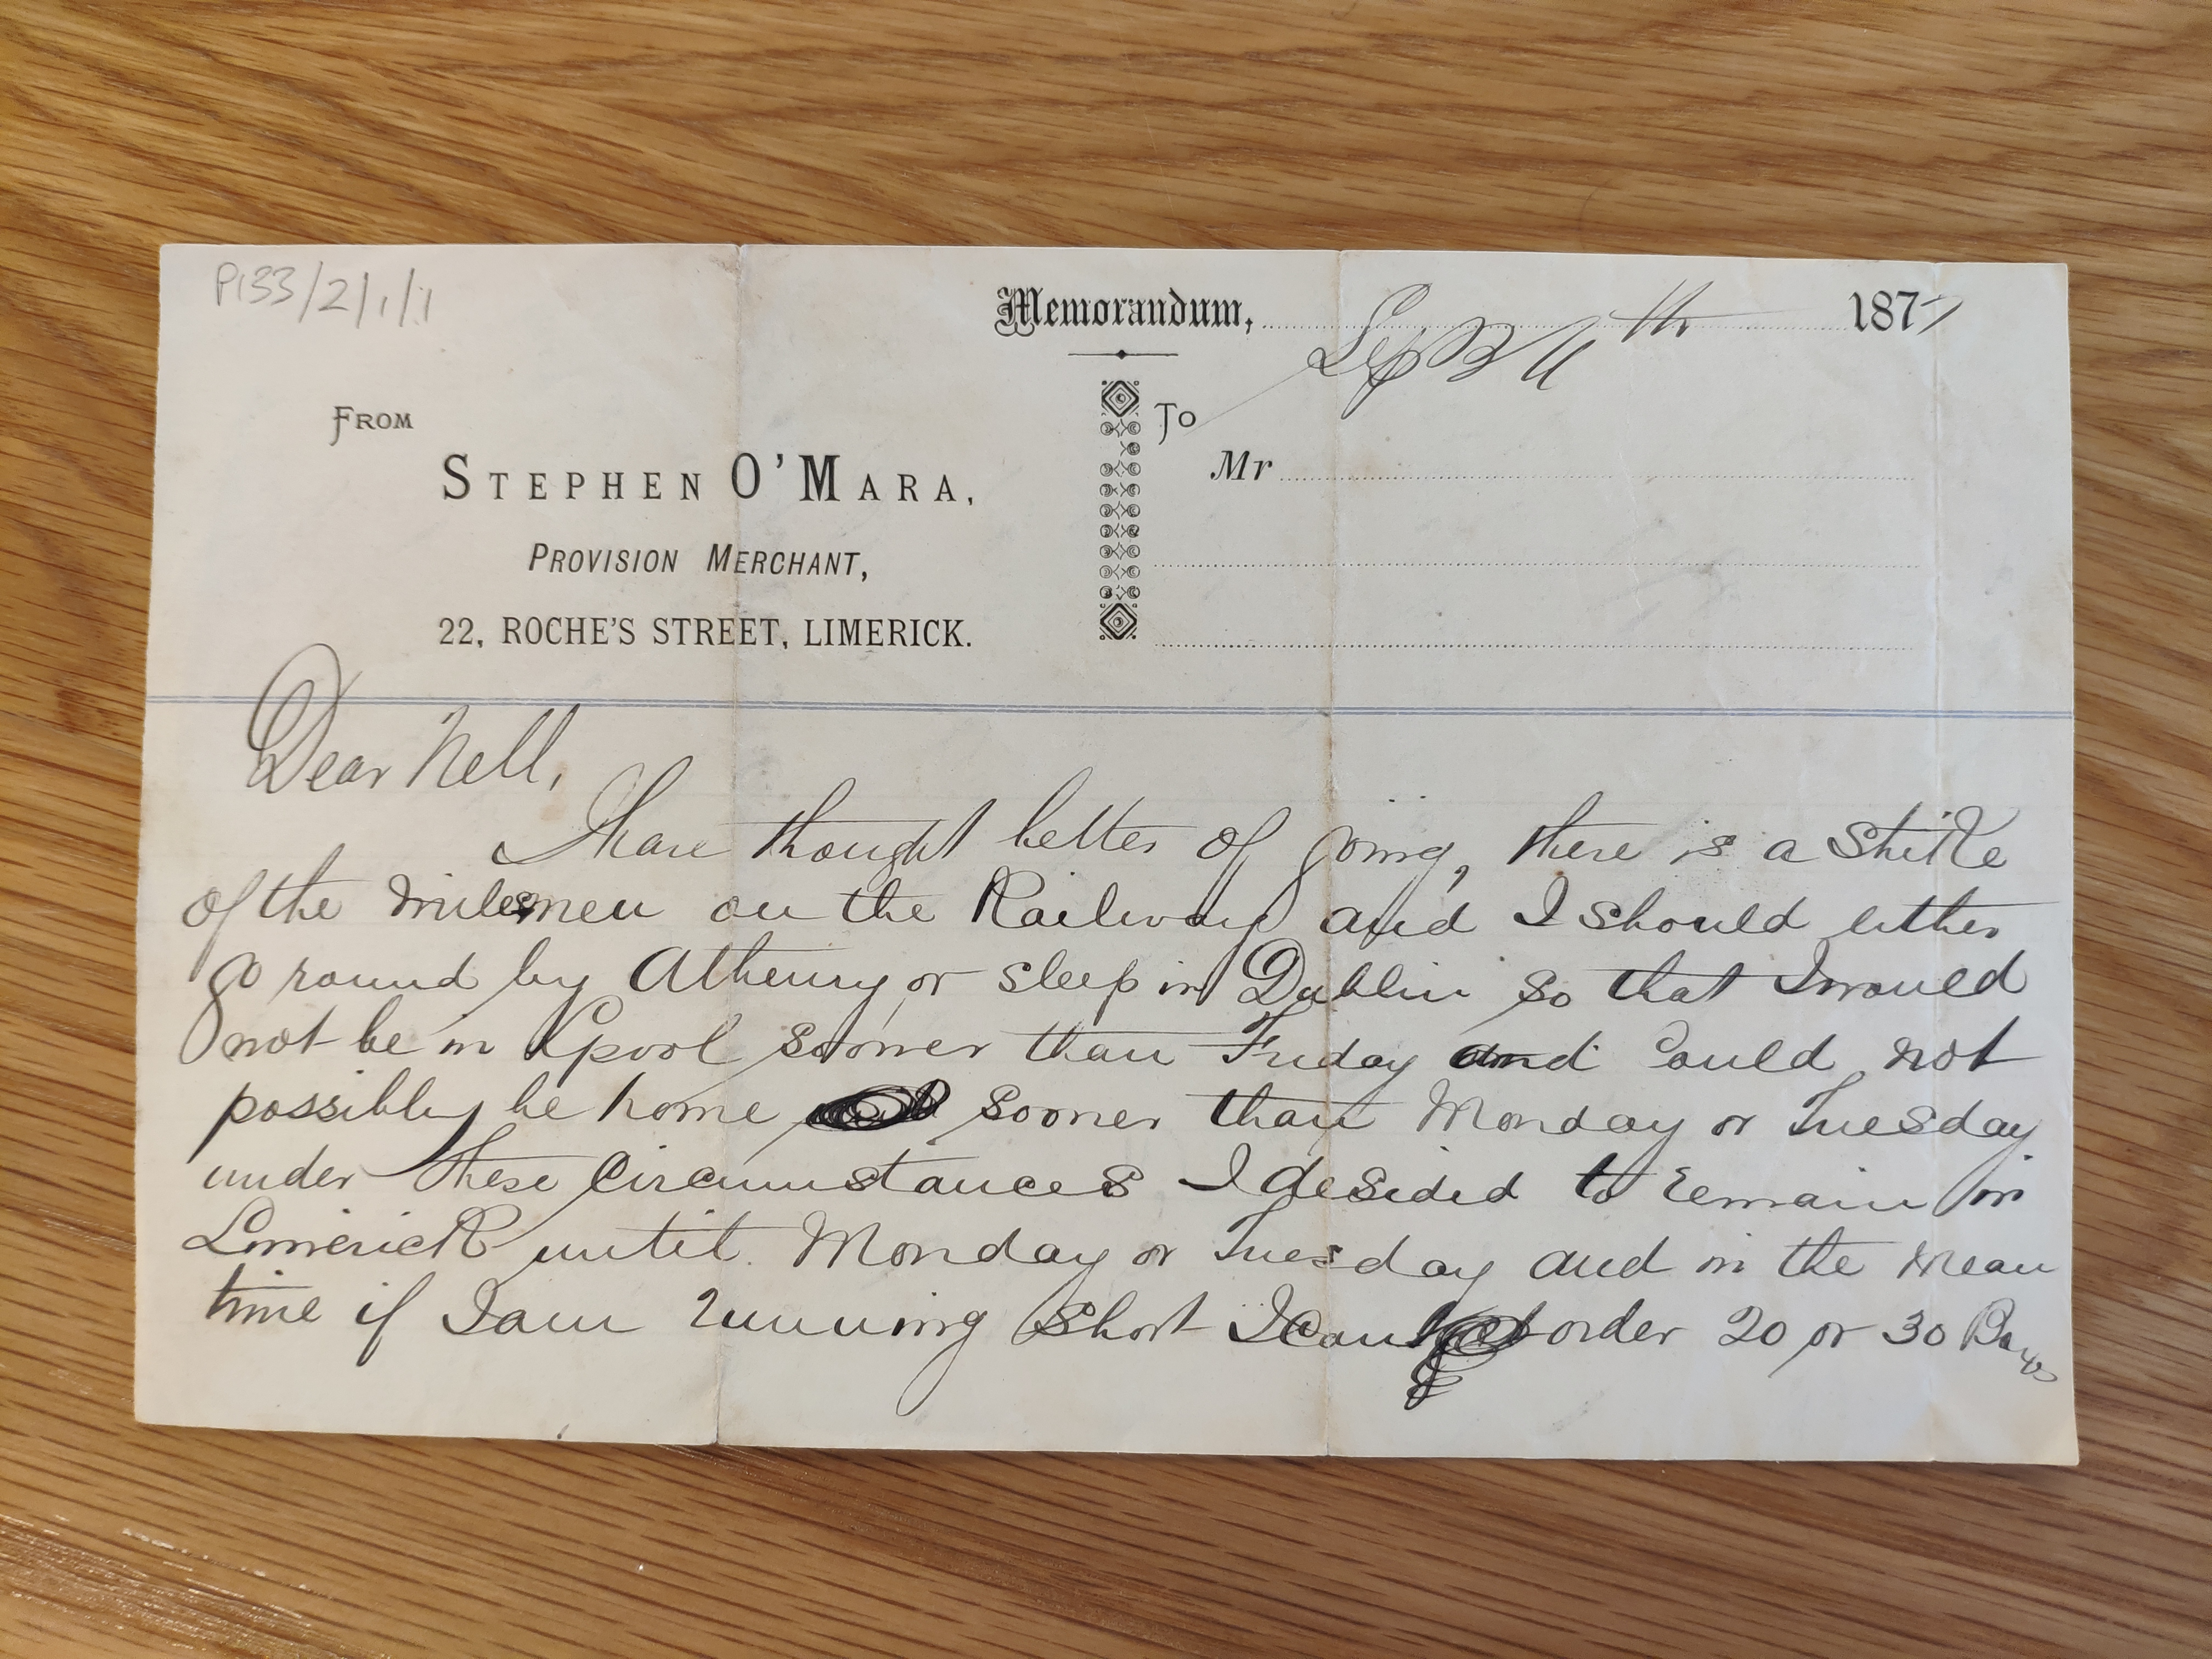 P133/2/1/1
Memorandum, Sept 11th 1877
FROM
To
STEPHEN O'MARA,
Mr
PROVISION MERCHANT,
22, ROCHE'S STREET, LIMERICK.
Dear Nell,
I have thought better of going, there is a strike
of the milesmen on the Railway and I should either
go round by Athenry or sleep in Dublin so that I would
not be in Lpool sooner than Friday and could not
possibly be home sooner than Monday or Tuesday
under these circumstances I desided to remain in
Limerick until Monday or Tuesday and in the mean
time if I am running short I can order 20 or 30